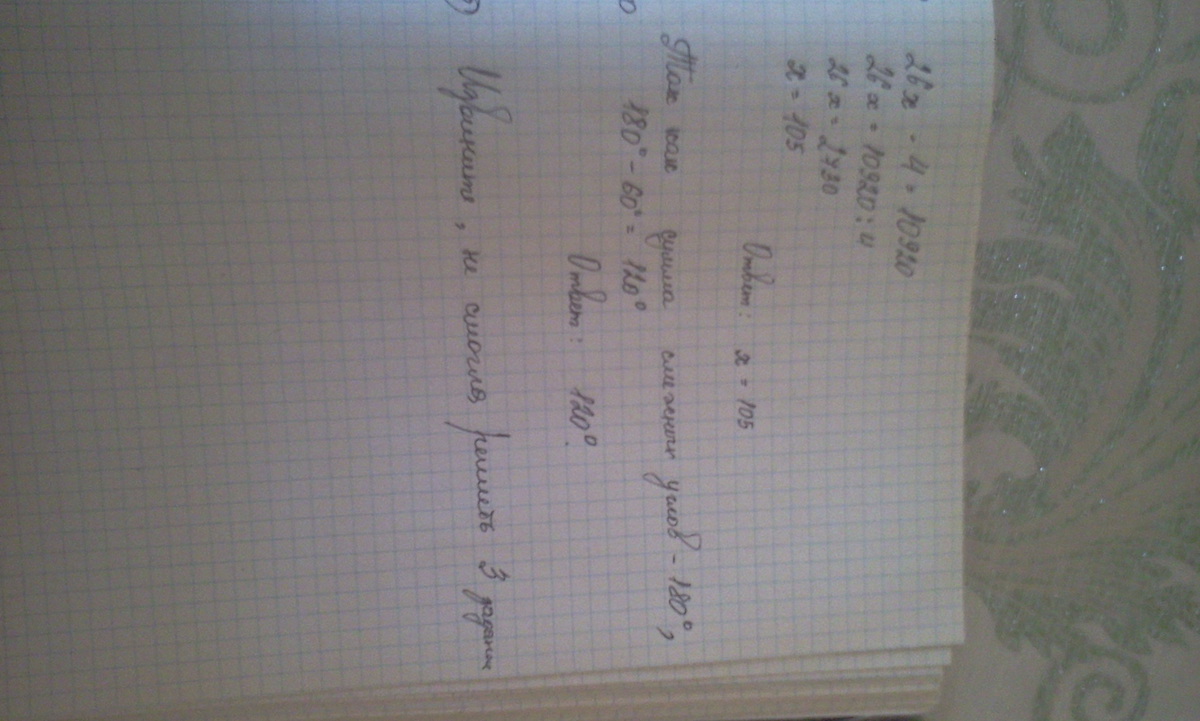 26 x · 4 = 10920
26 x = 10920 : 4
26 x = 2730
x = 105
Ответ: x = 105
Так как сумма смежных углов - 180°,
180° - 60° = 120°
Ответ: 120°
Извините, не смогла решить 3 задание